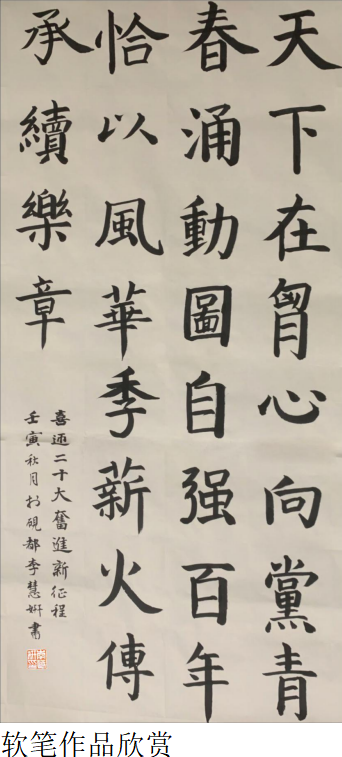 天下在胷心向黨青
春涌動圖自强百年
恰以風華季薪火傳
承續樂章
喜迎二十大奮進新征程
壬寅秋月於硯都李慧妍書
软笔作品欣赏